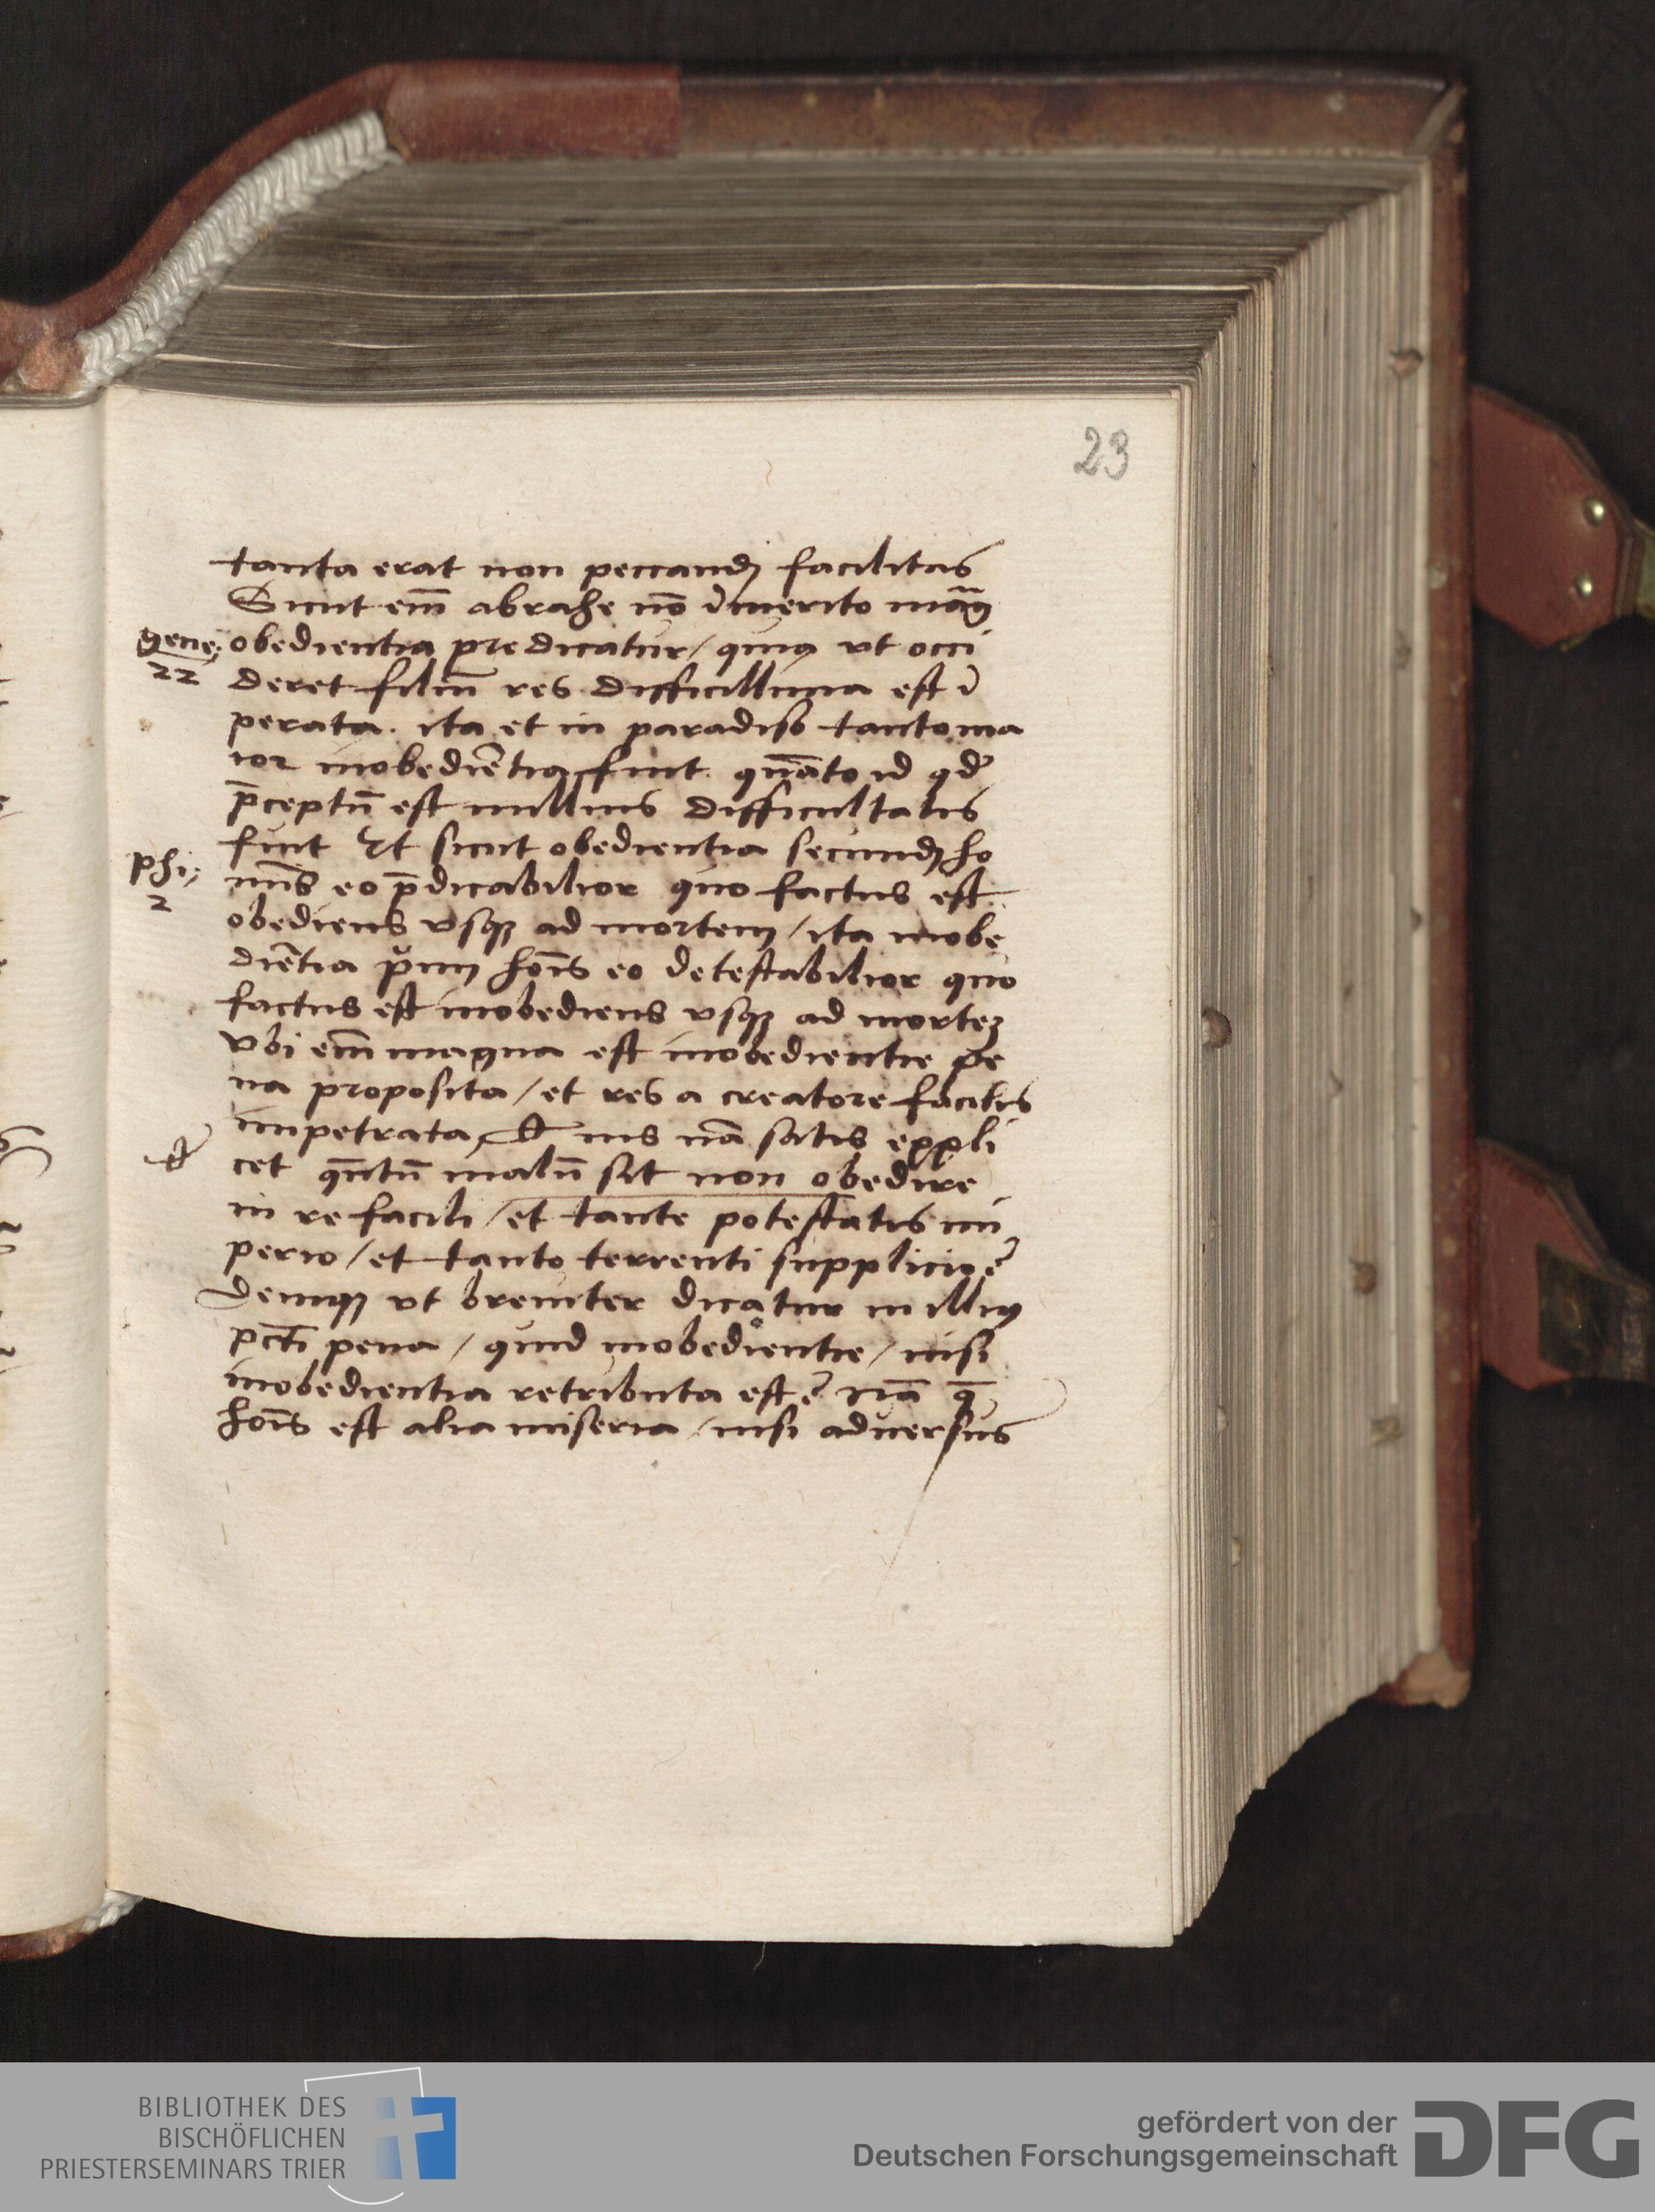 23
tanta erat non peccandj facilitas
Sicut em̄ abrahe nō īmerito mag̃
gene: obedientia predicatur / quia vt occi
22 deret filiū res difficillima est ī
perata. ita et in paradiso tanto ma
ior inobediētia fuit. quāto id qd̄
p̄ceptū est nullius difficultatis
fuit Et sicut obedientia secundj ho
phi: mīs eo p̄dicabilior quo factus est
2 obediens vsqꝫ ad mortem / ita inobe
diētia p̌mi hoīs eo detestabilior quo
factus est inobediens vsqꝫ ad morteꝫ
vbi em̄ magna est inobedientie pe
na proposita / et res a creatore facilis
impetrata, ꝗ nis nā satis expli
cet qn̄tū malū sit non obedire
in re facili / et tante potestatis im
perio / et tanto terrenti supplicio?
Deniqꝫ vt breuiter dicatur in illius
pcti pena / quid inobedientie / nisi
inobedientia retributa est? nā q̄
hoīs est alia miseria / nisi aduersus
BIBLIOTHEK DES
BISCHÖFLICHEN
PRIESTERSEMINARS TRIER
gefördert von der
Deutschen Forschungsgemeinschaft
DFG